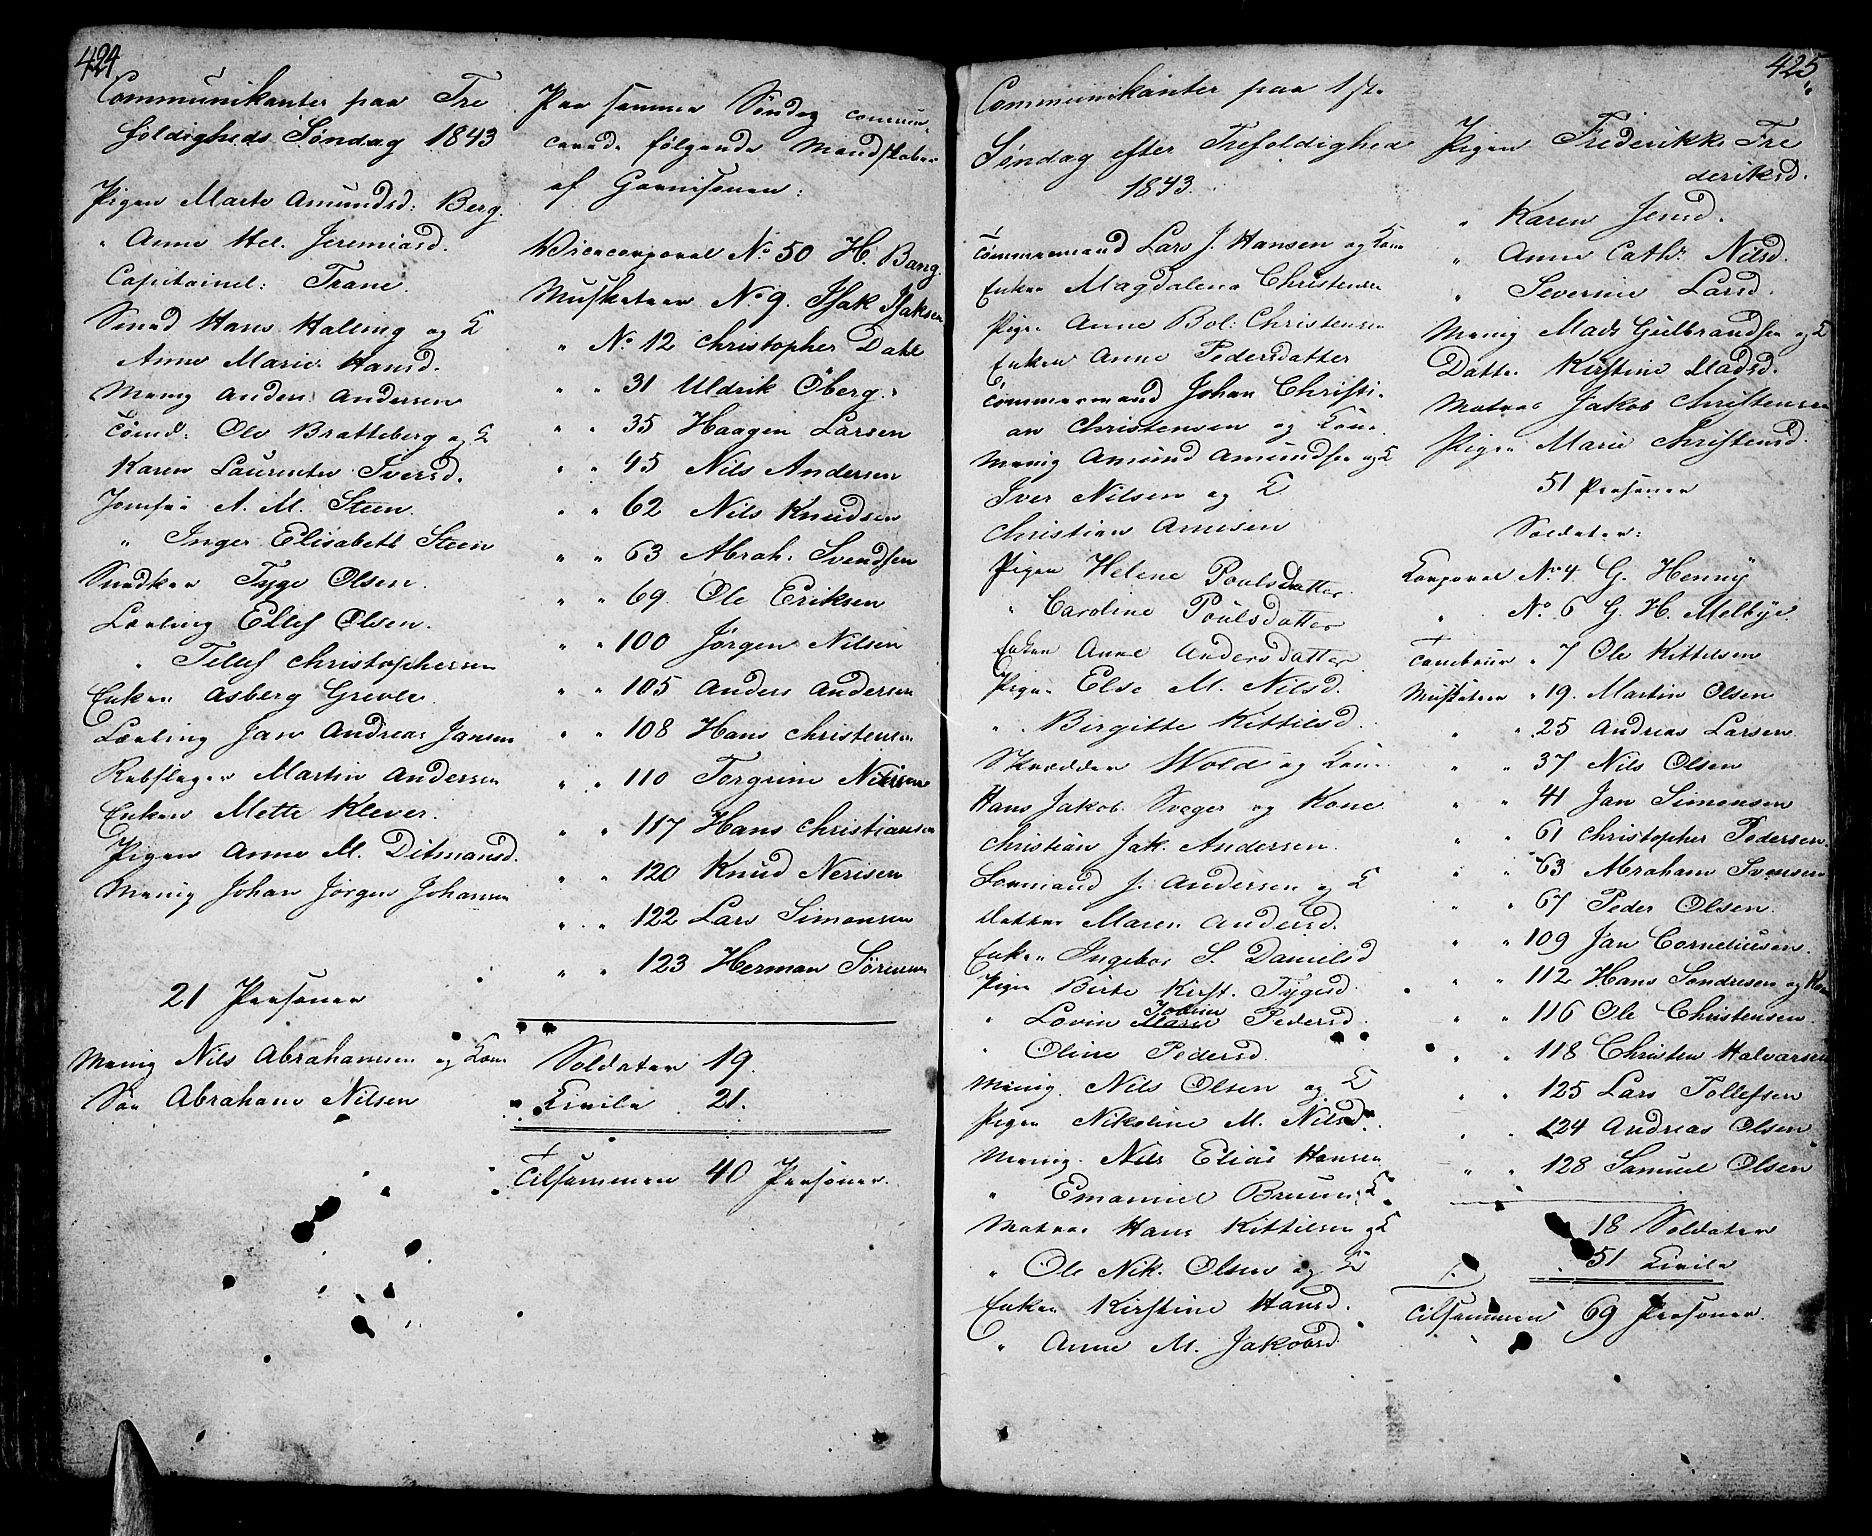 424
Communikanter paa Tre
foldigheds Søndag 1843
Pigen Marte Amundsd: Berg.
" Anne Hel. Jeremiasd.
Capitainel: Trane.
Smed Hans Halling og K
Anne Marie Hansd.
Menig Anders Andersen
Tømd: Ole Bratteberg og K
Karen Laurentse Iversd.
Jomfrue A. M. Steen.
" Inger Elisabeth Steen
Snedker Tyge Olsen.
Lærling Ellef Olsen.
" Tellef Christophersen
Enken Asberg Greve
Lærling Jan Andreas Jansen
Rebslager Martin Andersen
Enken Mette Klever.
Pigen Anne M. Ditmansd.
Menig Johan Jørgen Johansen
21 Personer
Menig Nils Abrahamsen og Kone
Søn Abraham Nilsen
Paa samme Søndag commun-
cerede følgende Mandskaber
af Garnisonen:
Vicecorporal No 50 H. Bang.
Musketeer No 9. Isak Isaksen
" No 12 Christopher Dahl
" " 31 Uldrik Öberg.
" " 35 Haagen Larsen
" " 45 Nils Andersen
" " 62 Nils Knudsen
" " 63 Abrah: Svendsen
" " 69 Ole Eriksen
" " 100 Jørgen Nilsen
" " 105 Anders Andersen
" " 108 Hans Christensen
" " 110 Torgrim Nilsen
" " 117 Hans Christiansen
" " 120 Knud Nerisen
" " 122 Lars Simonsen
" " 123 Herman Sørensen
Soldater 19.
Civile 21.
Tilsammen 40 Personer.
425
Communikanter paa 1ste
Søndag efter Trefoldighed
1843.
Tømmermand Lars J. Hansen og Kone
Enken Magdalena Christensen
Pigen Anne Bol: Christensen
Enken Anne Pedersdatter
Tømmermand Johan Christi-
an Christensen og Kone.
Menig Amund Amundsen og K
Iver Nilsen og K
Christian Arnesen
Pigen Helene Poulsdatter.
" Caroline Poulsdatter
Enken Anne Andersdatter
Pigen Else M. Nilsd.
" Birgitte Kittilsd.
Skrædder Wold og Kone
Hans Jakob Svæger og Kone
Christian Jak. Andersen.
Lormand J. Andersen og K
Datter Maren Andersd.
Enken Ingebor S. Danielsd
Pigen Birte Kirst. Tygesd.
Jodine
" Lovin Marie Pedersd.
" Oline Pedersd.
Menig. Nils Olsen og K
Pigen Nikoline M. Nilsd.
Menig. Nils Elias Hansen
" Emanuel Bruun. K
Matros Hans Kittilsen og K
" Ole Nik. Olsen og K
Enken Kirstine Hansd.
" Anne M. Jakobsd.
Pigen Frederikke Fre
deriksd.
" Karen Jensd.
" Anne Cath: Nilsd.
" Severine Larsd.
Menig Mads Gulbrandsen og K
Datter Kirstine Madsd.
Matros Jakob Christensen
Pigen Marie Christensd.
51 Personer
Soldater:
Korporal No. 4 G. Henny
" No 6 G. H. Melbye.
Tambour " 7 Ole Kittelsen
Musketeer " 19. Martin Olsen
" " 25 Andreas Larsen
" " 37 Nils Olsen
" " 41 Jan Simonsen
" " 61 Christopher Pedersen.
" " 63 Abraham Svensen
" " 67 Peder Olsen.
" " 109 Jan Corneliusen.
" " 112 Hans Sondresen og Kone
" " 116 Ole Christensen.
" " 118 Christen Halvorsen
" " 125 Lars Tollefsen
" " 124 Andreas Olsen
" " 128 Samuel Olsen
18 Soldater
51 Civile
Tilsammen 69 Personer.